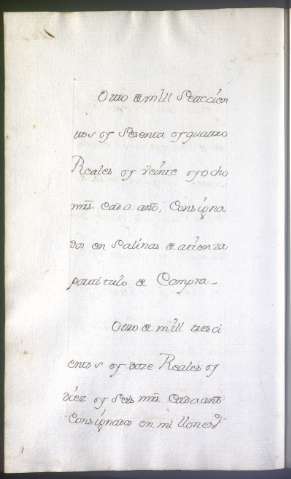 Otro de mill Setecien
tos y sesenta y quatro
Reales y veinte y ocho
mrs. cada año, Consigna
dos en Salinas de atienza
por titulo de Compra.
Otro de mill tresci
entos y doze Reales y
diez y seis mrs. Cada año
Consignados en millones